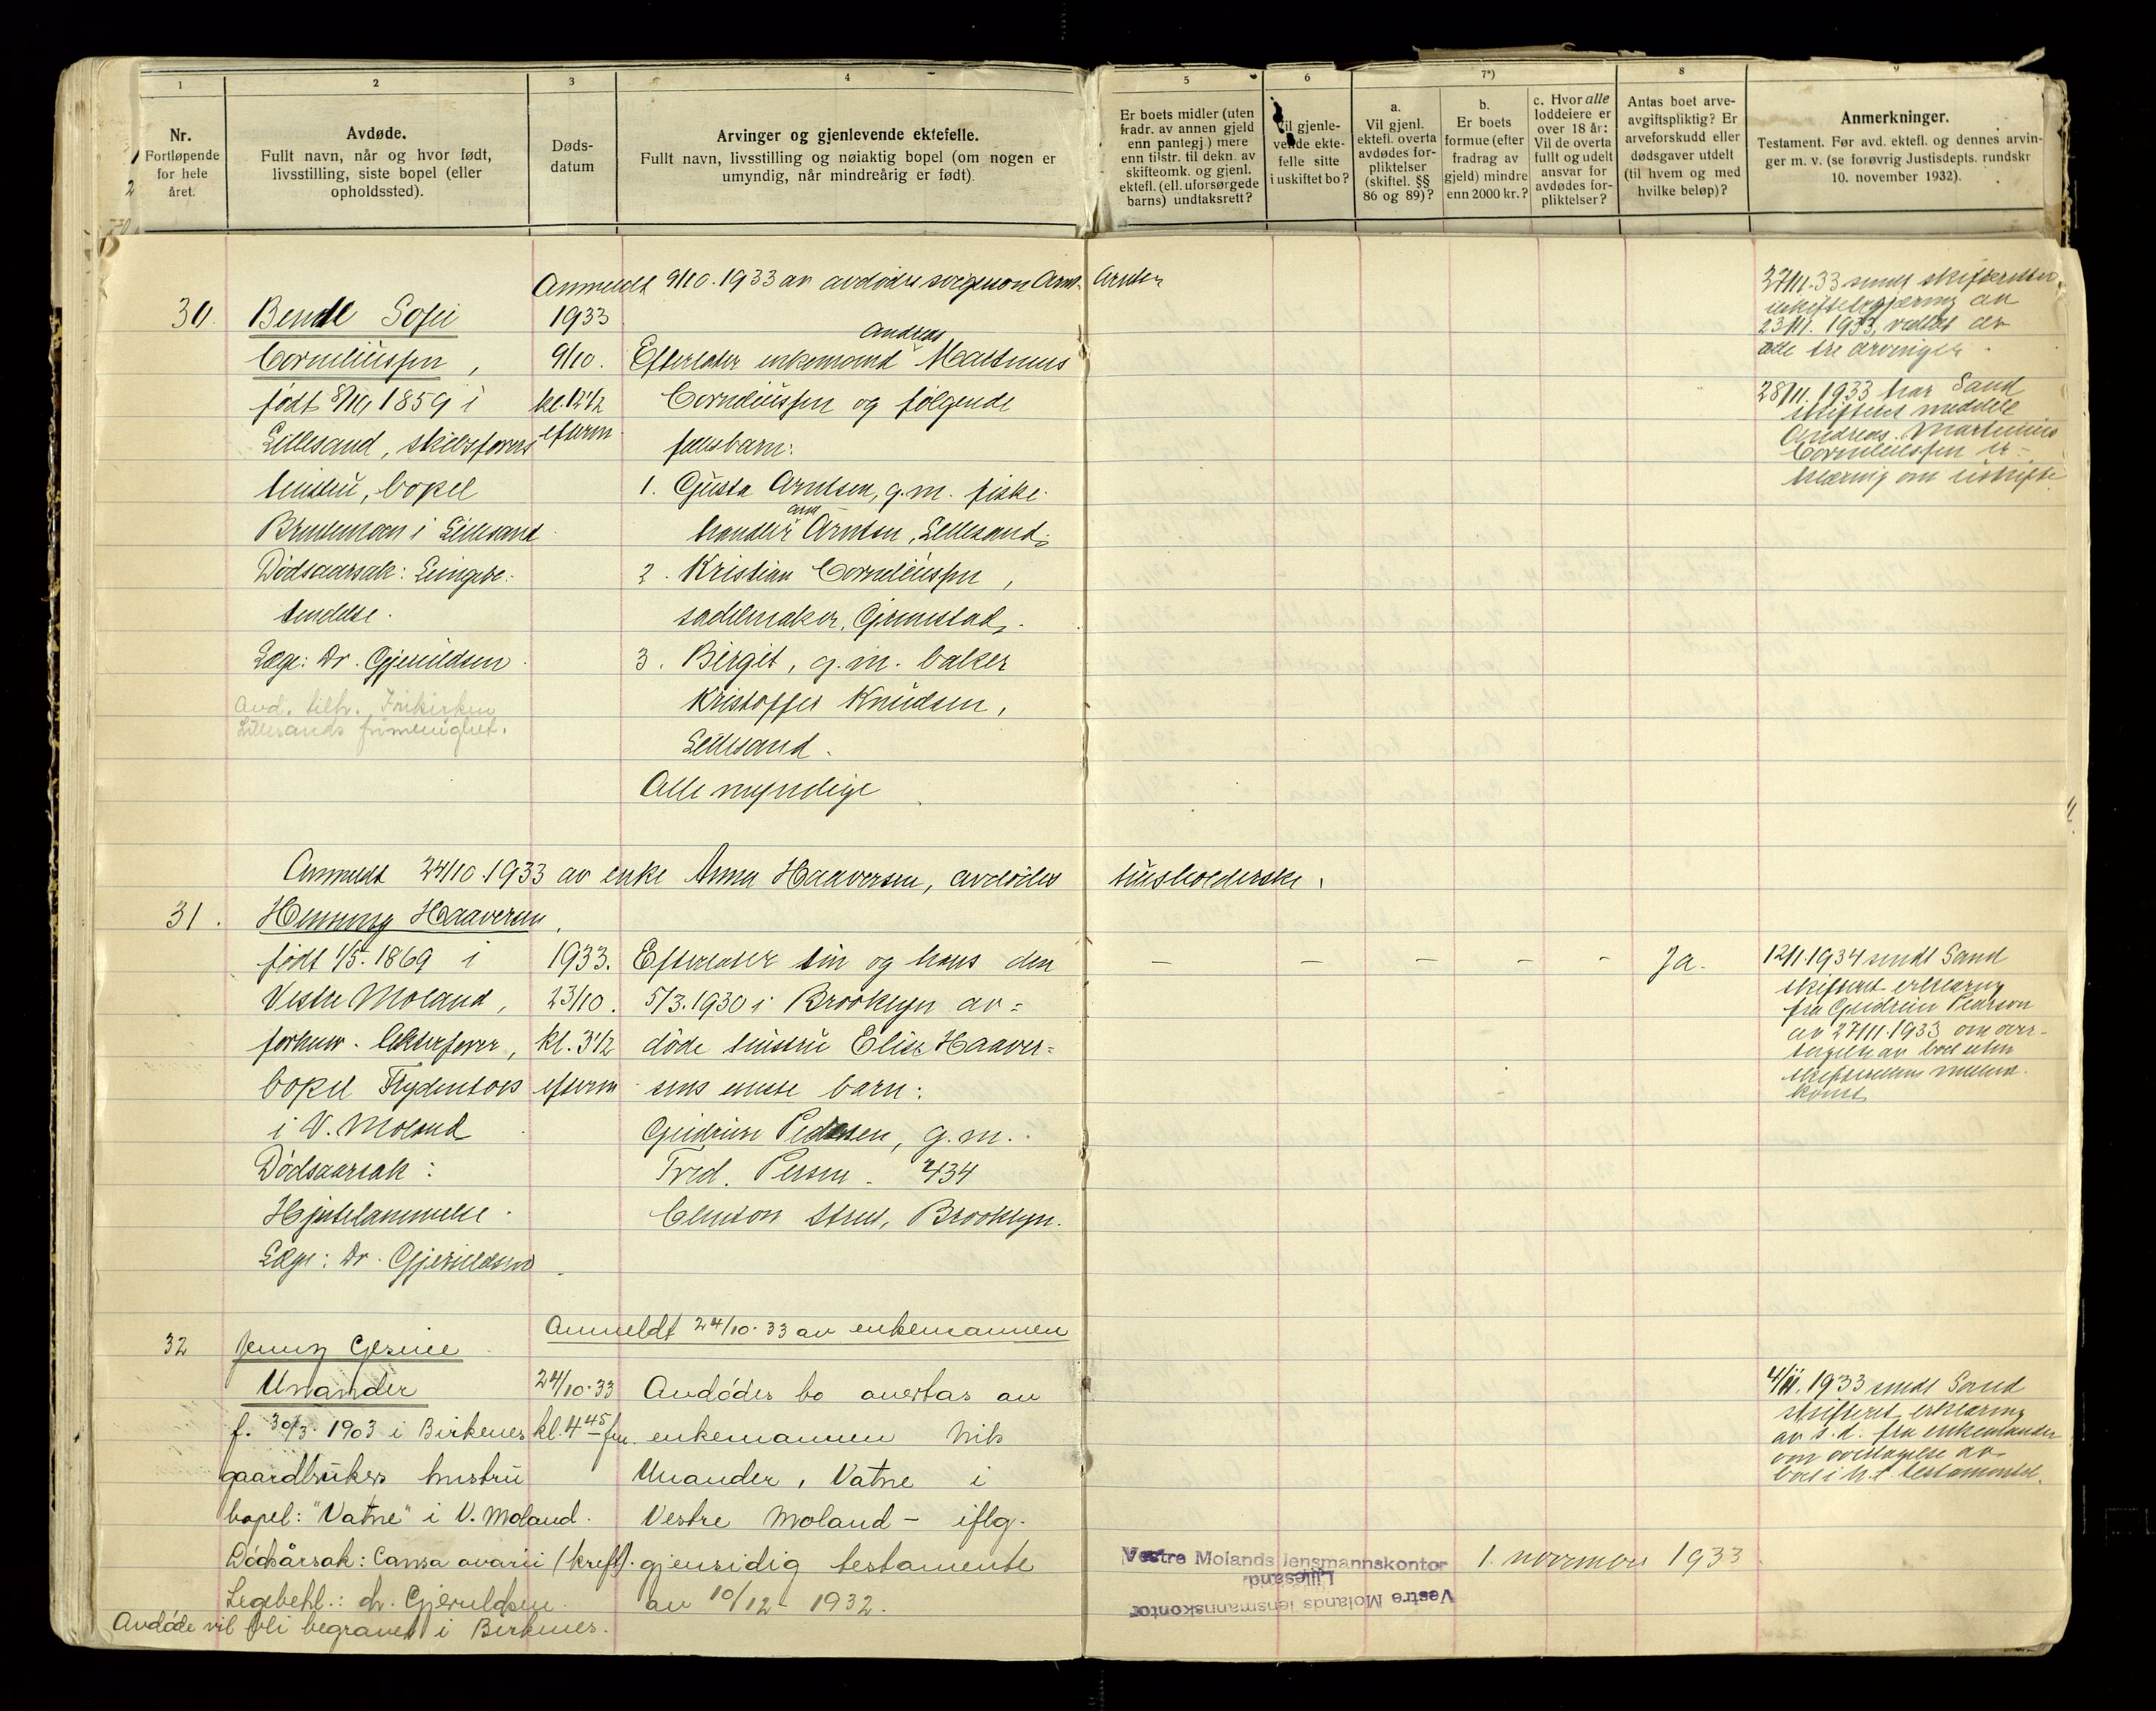 1
Nr.
Fortløpende
for hele
året.
2
Avdøde.
Fullt navn, når og hvor født,
livsstilling, siste bopel (eller
opholdssted).
3
Døds-
datum
4
Arvinger og gjenlevende ektefelle.
Fullt navn, livsstilling og nøiaktig bopel (om nogen er
umyndig, når mindreårig er født).
5
Er boets midler (uten
fradr. av annen gjeld
enn pantegj.) mere
enn tilstr. til dekn. av
skifteomk. og gjenl.
ektefl. (ell. uforsørgede
barns) undtaksrett?
6
Vil gjenle-
vende ekte-
felle sitte
i uskiftet bo?
7*)
a.
Vil gjenl.
ektefl. overta
avdødes for-
pliktelser
(skiftel. §§
86 og 89)?
b.
Er boets
formue (efter
fradrag av
gjeld) mindre
enn 2000 kr.?
c. Hvor alle
loddeiere er
over 18 år:
Vil de overta
fullt og udelt
ansvar for
avdødes for-
pliktelser?
8
Antas boet arve-
avgiftspliktig? Er
arveforskudd eller
dødsgaver utdelt
(til hvem og med
hvilke beløp)?
9
Anmerkninger.
Testament. Før avd. ektefl. og dennes arvin-
ger m. v. (se forøvrig Justisdepts. rundskr
10. november 1932).
Anmeldt 9/10. 1933 av avdødes svigersøn Arnt Arntsen
30.
Sofie
Corneliussen,
født 8/10 1859 i
Lillesand,
hustru, bopel
i Lillesand
Dødsaarsak: Lungebe-
tendelse.
Læge: Dr. Gjeruldsen
Avd. tilh. Frikirken
Lillesands frimenighet.
1933
9/10.
kl. 12 1/2
efterm
Andreas
Efterlater enkemand Martinius
Corneliussen og følgende
fellesbarn:
1. Gusta Arntsen, g.m. fiske-
Arnt
handler Arntsen, Lillesand.
2. Kristian Corneliussen,
sadelmaker, Grimstad.
3. Birgit, g.m. baker
Kristoffer Knudsen,
Lillesand.
Alle myndige
27/11.33 sendt skifteretten
uskifteerklæring av
23/11. 1933, vedtat av
alle tre arvinger.
28/11. 1933 har Sand
skifteret meddelt
Andreas Martinius
Corneliussen er-
klæring om uskifte
Anmeldt 24/10.1933 av enke Anna Haaversen, avdødes husholderske.
31.
Henning Haaversen,
født 1/5. 1869 i
Vestre Moland,
bopel
i V. Moland
Dødsaarsak:
Hjertelammelse.
Læge: Dr. Gjeruldsen
1933.
23/10.
kl. 3 1/2
efterm
Efterlater sin og hans den
5/3. 1930 i Brooklyn av=
døde hustru Elise Haaver=
sens eneste barn:
Gudrun Pedersen, g.m.
Fred. Person. 434
Clinton Street, Brooklyn.
– – – – – Ja.
12/1.1934 sendt Sand
skifteret erklæring
fra Gudrun Pearson
av 27/11.1933 om over-
tagelse av boet uten
skifterettens mellem-
komst
32
Anmeldt 24/10.33 av enkemannen
Jenny Gesine
Unander
f. 30/3. 1903 i Birkenes
gaardbrukers hustru
bopel: "Vatne" i V. Moland.
Dødsårsak: Cansa ovarii (kreft).
Legebehl.: dr. Gjeruldsen.
Avdøde vil bli begravet i Birkenes.
24/10.33
kl. 4 45 fm.
Avdødes bo overtas av
enkemannen Nils
Unander, Vatne i
Vestre Moland – iflg.
gjensidig testamente
av 10/12 – 1932.
4/11. 1933 sendt Sand
skifteret erklæring
av s.d. fra enkemanden
om overtagelse av
boet i h.t. testamentet.
Vestre Molands lensmannskontor 1. november 1933
Lillesand
Vestre Molands lensmannskontor